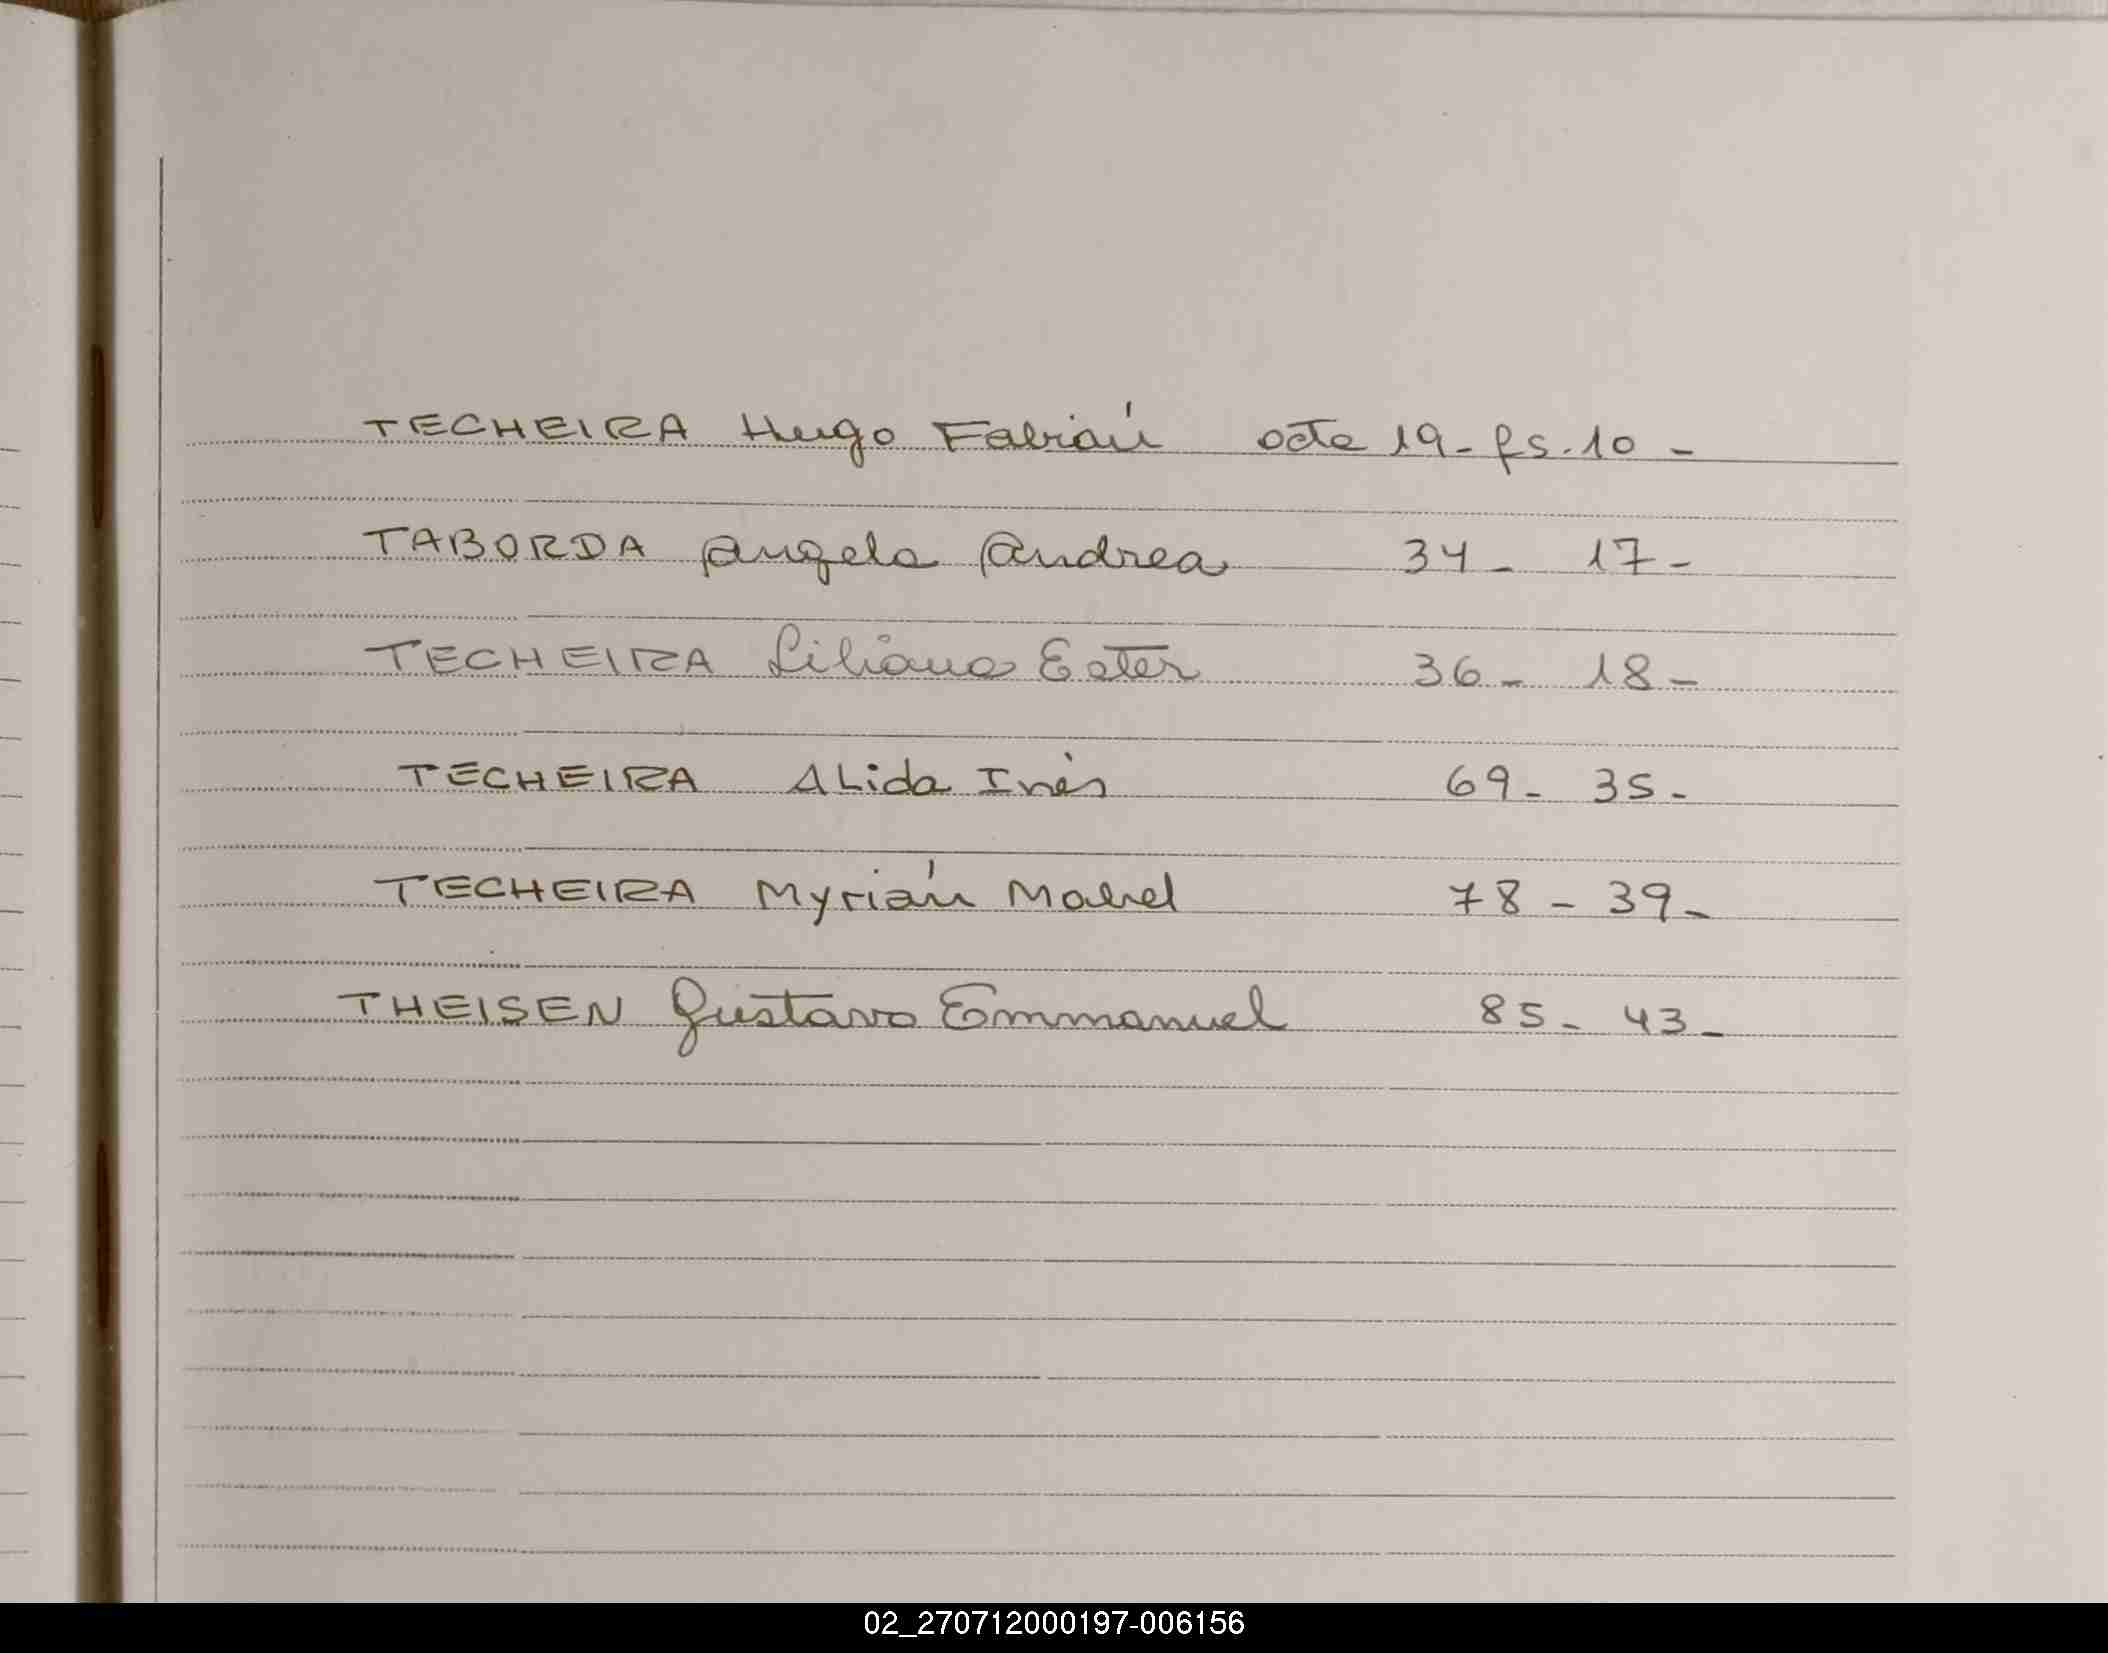 TECHEIRA Hugo Fabián acta 19- fs. 10 -
TABORDA Angela Andrea 34- 17-
TECHEIRA Liliana Ester 36- 18-
TECHEIRA ALida Inés 69- 35-
TECHEIRA Myrián Mabel 78- 39-
THEISEN Gustavo Emmanuel 85- 43-
02_270712000197-006156